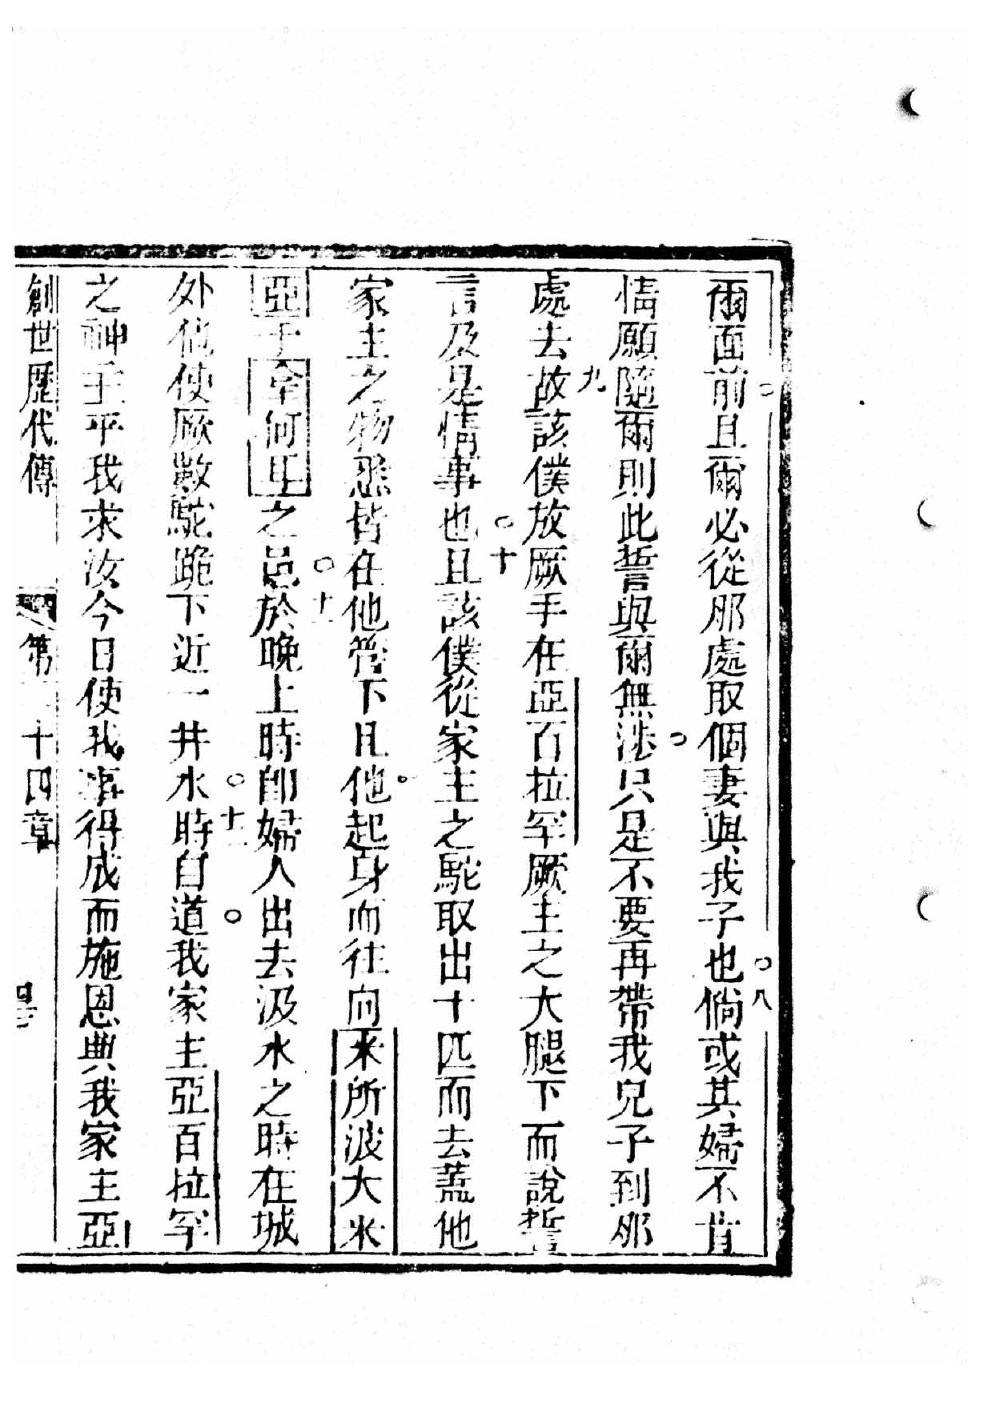 爾面前且爾必從那處取個妻與我子也。八倘或其婦不肯
情願隨爾則此誓與爾無涉。只是不要再帶我兒子到那
處去九故該僕放厥手在亞百拉罕厥主之大腿下而說誓
言及是情事也。十且該僕從家主之駝取出十匹而去蓋他
家主之物悉皆在他管下。且他起身而往向米所波大米
亞于拿何耳之邑。十一於晚上時即婦人出去汲水之時在城
外他使厥數駝跪下近一井水時。十二自道。我家主亞百拉罕
之神主乎我求汝今日使我事得成而施恩典我家主亞
創世歷代傳 第二十四章